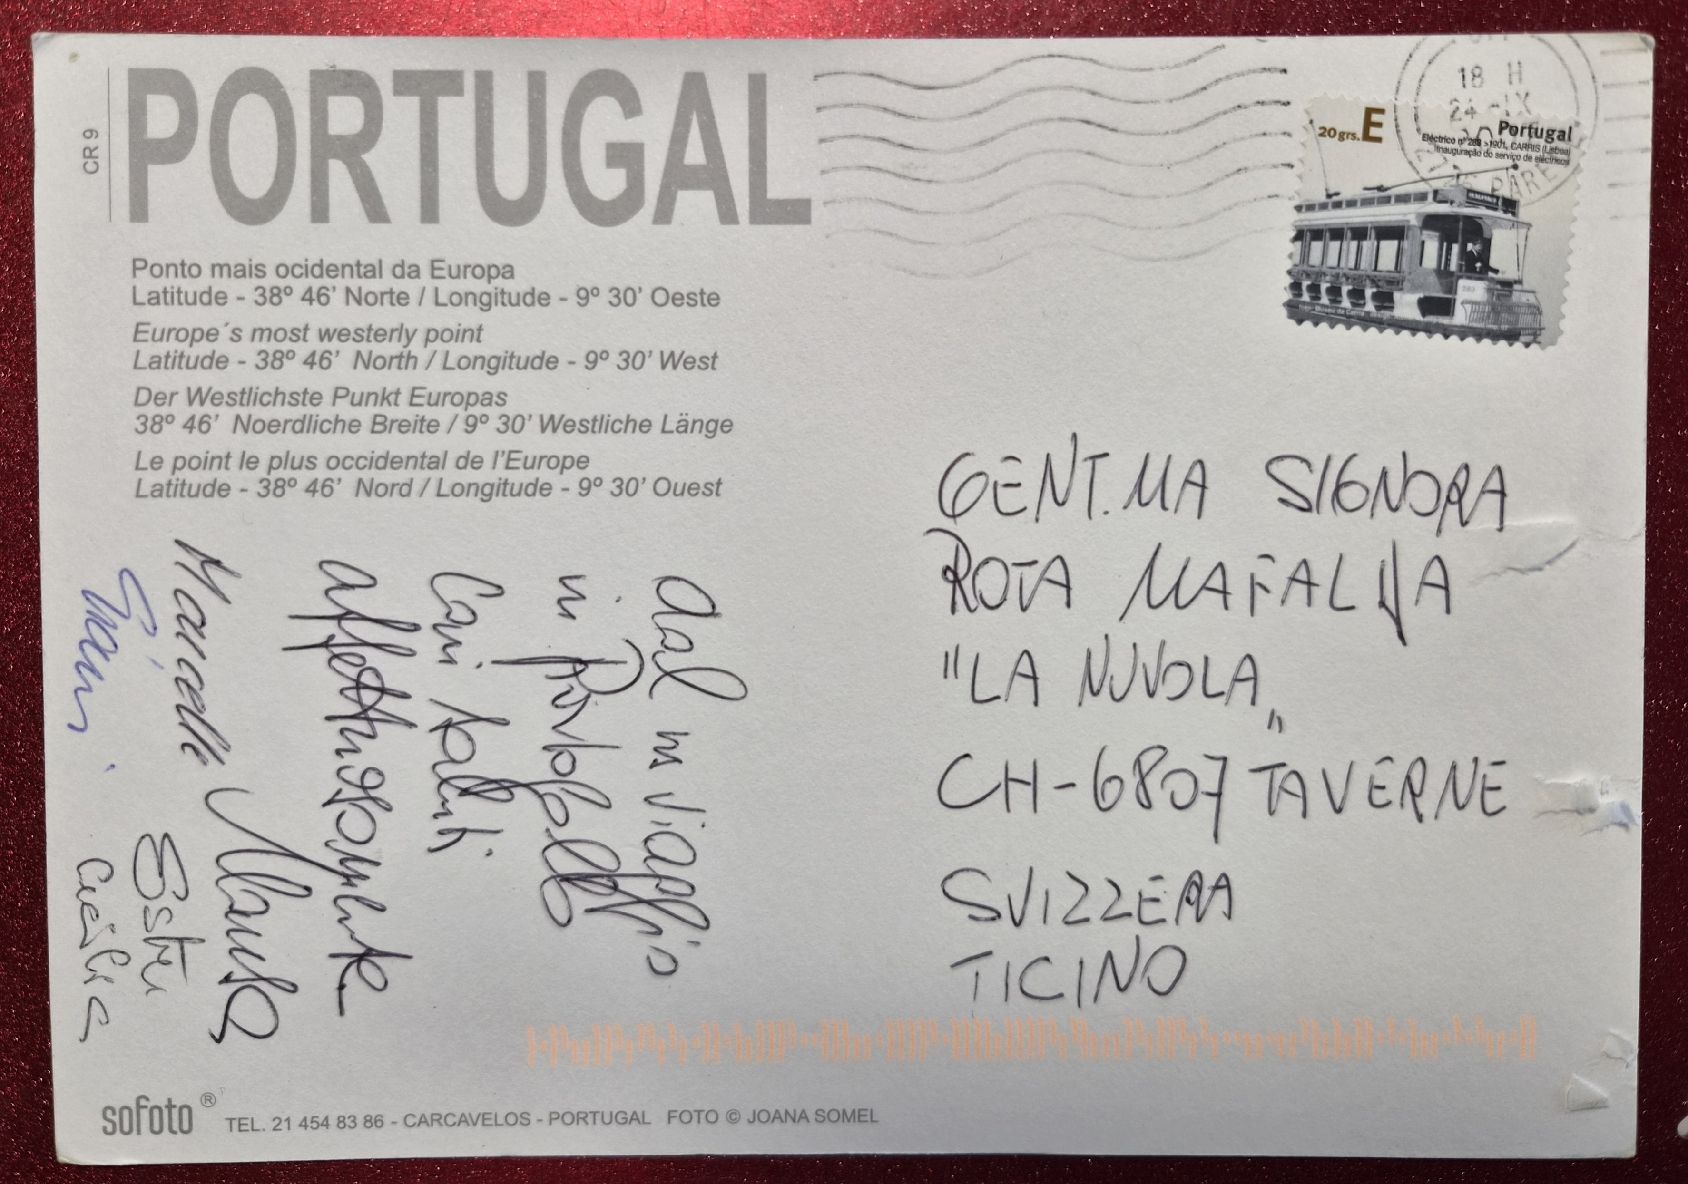 CR 9
PORTUGAL
Ponto mais ocidental da Europa
Latitude - 38º 46’ Norte / Longitude - 9º 30’ Oeste
Europe´s most westerly point
Latitude - 38º 46’ North / Longitude - 9º 30’ West
Der Westlichste Punkt Europas
38º 46’ Noerdliche Breite / 9º 30’ Westliche Länge
Le point le plus occidental de l’Europe
Latitude - 38º 46’ Nord / Longitude - 9º 30’ Ouest
18 H
24 -IX
PARE
20 grs. E
Portugal
Eléctrico nº 283 - 1901, CARRIS (Lisboa)
Inauguração do serviço de eléctricos
Museu da Carris
283
dal ns viaggio
in Portogallo
Cari saluti
affettuosamente
Marcello
Ester
Cecilia
GENT.MA SIGNORA
ROTA MAFALDA
"LA NUVOLA"
CH-6807 TAVERNE
SVIZZERA
TICINO
sofoto ® TEL. 21 454 83 86 - CARCAVELOS - PORTUGAL FOTO © JOANA SOMEL